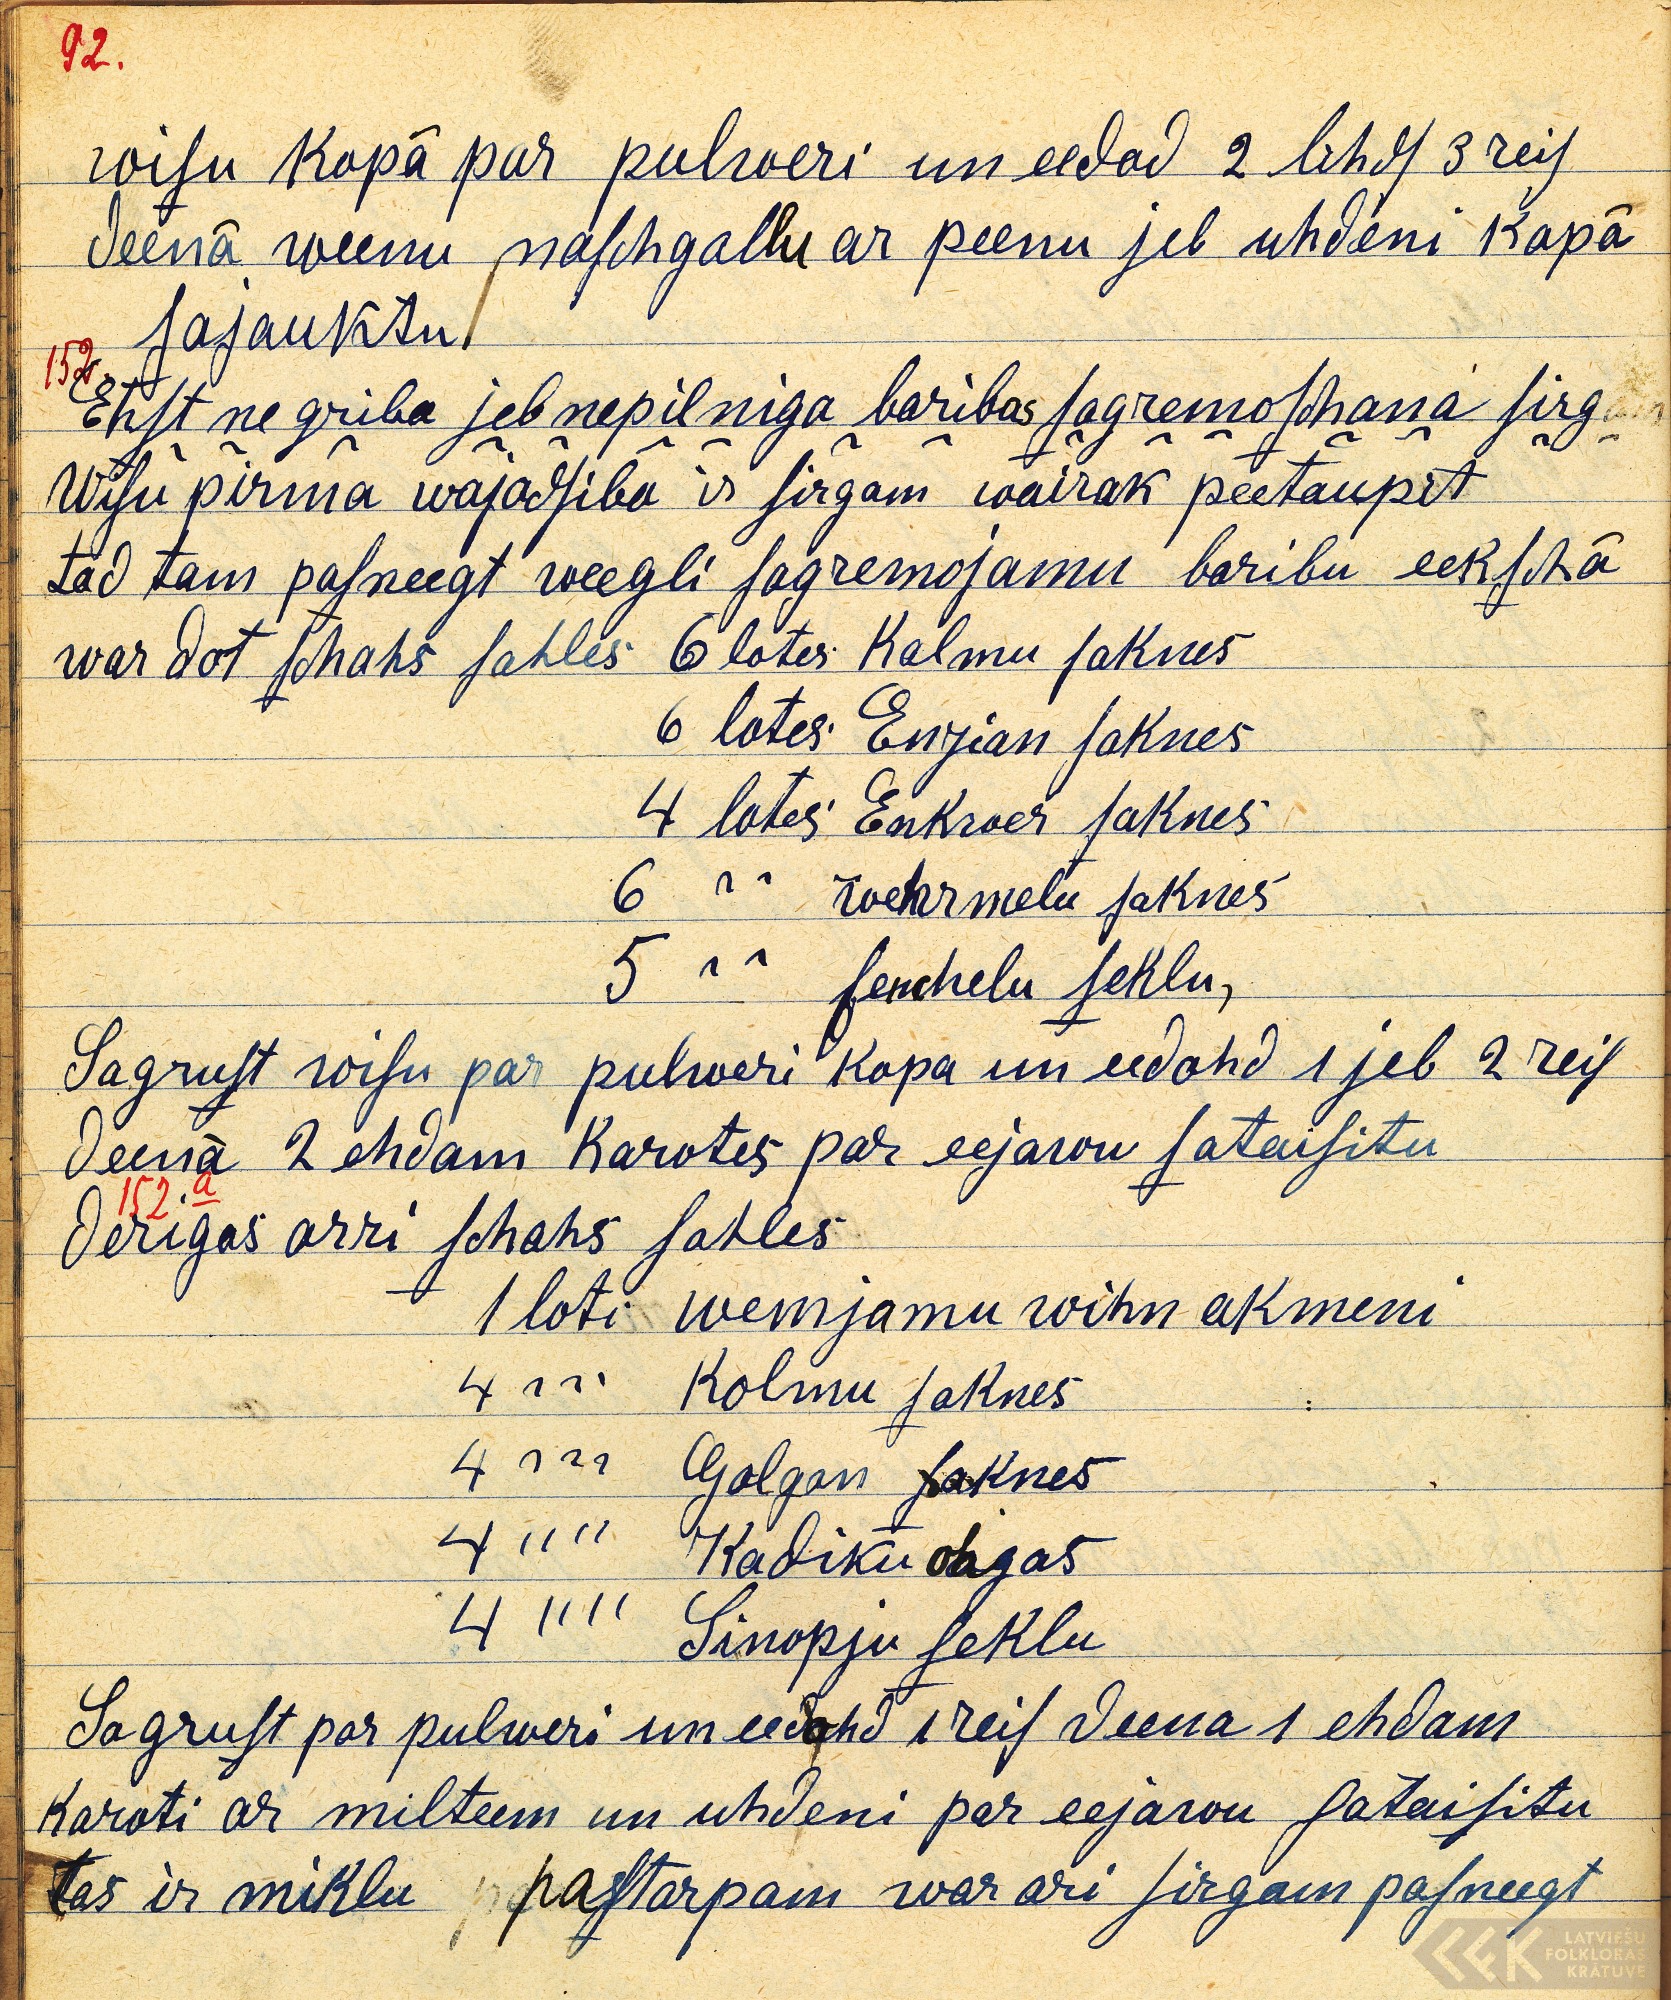 92.
wiſu kopā par pulweri un eedod 2 lihdſ 3 reiſ
deenā weenu naſchgallu ar peenu jeb uhdeni kopā
ſajauktu
152.
Ehſt ne griba jeb nepilniga baribas ſagremoſchana ſirgam
Wiſu pirma wajadſiba ir ſirgam wairak peetaupit
tad tam paſneegt weegli ſagremojamu baribu eekſchā
war dot ſchahs ſahles 6 lotes Kalmu ſaknes
6 lotes Enzian ſaknes
4 lotes Enkwer ſaknes
6 " wehrmelu ſaknes
5 " fenchelu ſeklu,
Sagruſt wiſu par pulweri kopa un eedohd 1 jeb 2 reiſ
deenā 2 ehdam karotes par eejawu ſataiſitu
152 a
Derigas arri ſchahs ſahles
1 loti wemjamu wihn akmeni
4 " Kolmu ſaknes
4 " Galgan ſaknes
4 "" Kadiku ohgas
4 "" Sinopju ſeklu
Sagruſt par pulweri un eedohd 1 reiſ deena 1 ehdam
karoti ar milteem un uhdeni par eejawu ſataiſitu
tas ir miklu paſtarpam war ari ſirgam paſneegt
LATVIEŠU
FOLKLORAS
KRĀTUVE